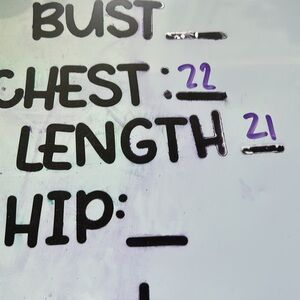 BUST __
CHEST: 22
LENGTH 21
HIP: __